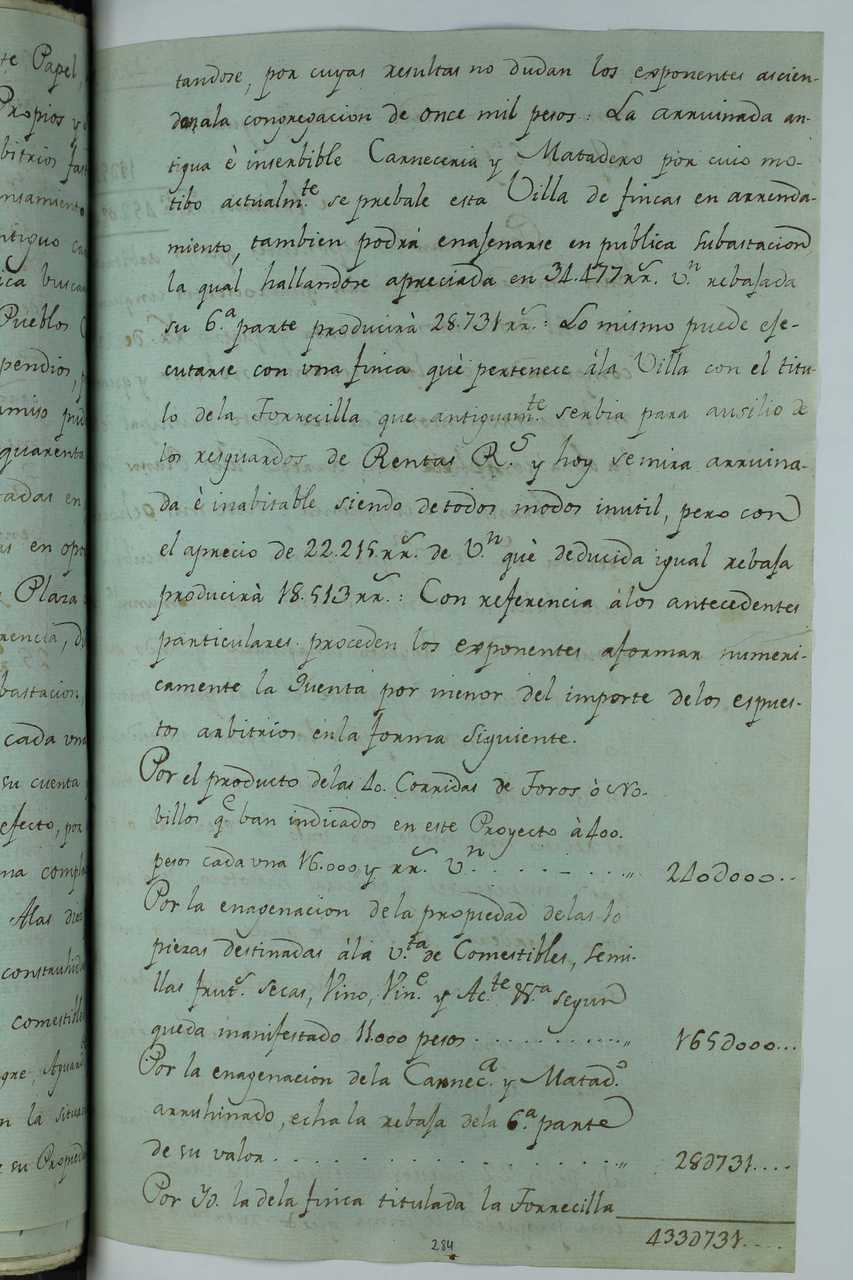 te Papel,
Propios y
bitrios
ntiguo
ica busca
Pueblos
pendios,
amiso
quarenta
adas en
as en
Plaza
rencia,
bastacion,
cada una
su cuenta
efecto, por
na
Alas
comestible
n la
e su Propiedad
tandose, por cuyas resultas no dudan los exponentes ascien-
den, ala congregacion de once mil pesos: La arruinada an-
tigua è inserbible Carneceria y Matadero por cuio mo-
tibo actualm.te se prebale esta Villa de fincas en arrenda-
miento, tambien podrá enagenarse en publica subastacion
la qual hallandose apreciada en 34.477 rr.s v.n rebajada
su 6.a parte producirà 28.731 rr.s: Lo mismo puede eje-
cutarse con vna finca què pertenece àla Villa con el titu-
lo dela Torrecilla que antiguam.te serbia para ausilio de
los resguardos de Rentas R.s y hoy semira arruina-
da è inabitable siendo detodos modos inutil, pero con
el aprecio de 22.215 rr.s de V.n què deducida igual rebaja
producirà 18.513 rr.s: Con referencia àlos antecedentes
particulares proceden los exponentes aformar numeri-
camente la Quenta por menor del importe delos espues-
tos arbitrios enla forma siguiente.
Por el producto delas 40. Corridas de Toros ò No-
billos q.e ban indicados en este Proyecto à 400.
pesos cada vna 16.000 y rr.s V.n . . . . . . „ 240ᴅ000..
Por la enagenacion dela propiedad delas 10
piezas destinadas àla v.ta de Comestibles, Semi-
llas frut.s secas, Vino, Vin.e y Ac.te &.a segun
queda manifestado 11.000 pesos . . . . . . . . . . „ 165ᴅ000...
Por la enagenacion dela Carnec.a y Matad.o
arruhinado, echa la rebaja dela 6.a parte
de su valor . . . . . . . . . . . . . . . . „ 28ᴅ731....
Por Yd. la dela finca titulada la Torrecilla
433ᴅ731....
284